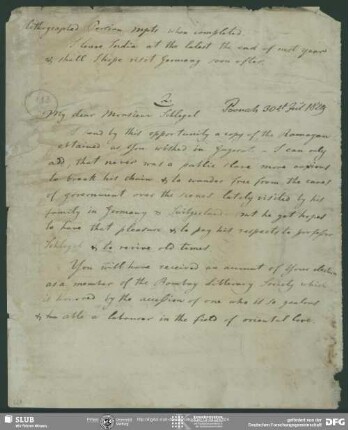 lithographed Persian mspts when completed
I leave India at the latest the end of next year
& shall I hope visit Germany soon after.
Poonah 30th 1829
My dear Monsieur Schlegel
I send by this opportunity a copy of the Ramayan
obtained as you wished in Guzerat – I can only
add, that never was a public slave more anxious
to break his chains & to wander free from the cares
of government over the scenes lately visited by his
family in Germany & Switzerland – but he yet hopes
to have that pleasure & to pay his respects to professor
Schlegel & to revive old times
You will have received an account of your election
as a member of the Bombay Litterary Society which
is honored by the accession of one who is so zealous
& so able a labourer in the field of oriental lore.
SLUB
Wir führen Wissen.
gefördert von der
Deutschen Forschungsgemeinschaft
DFG